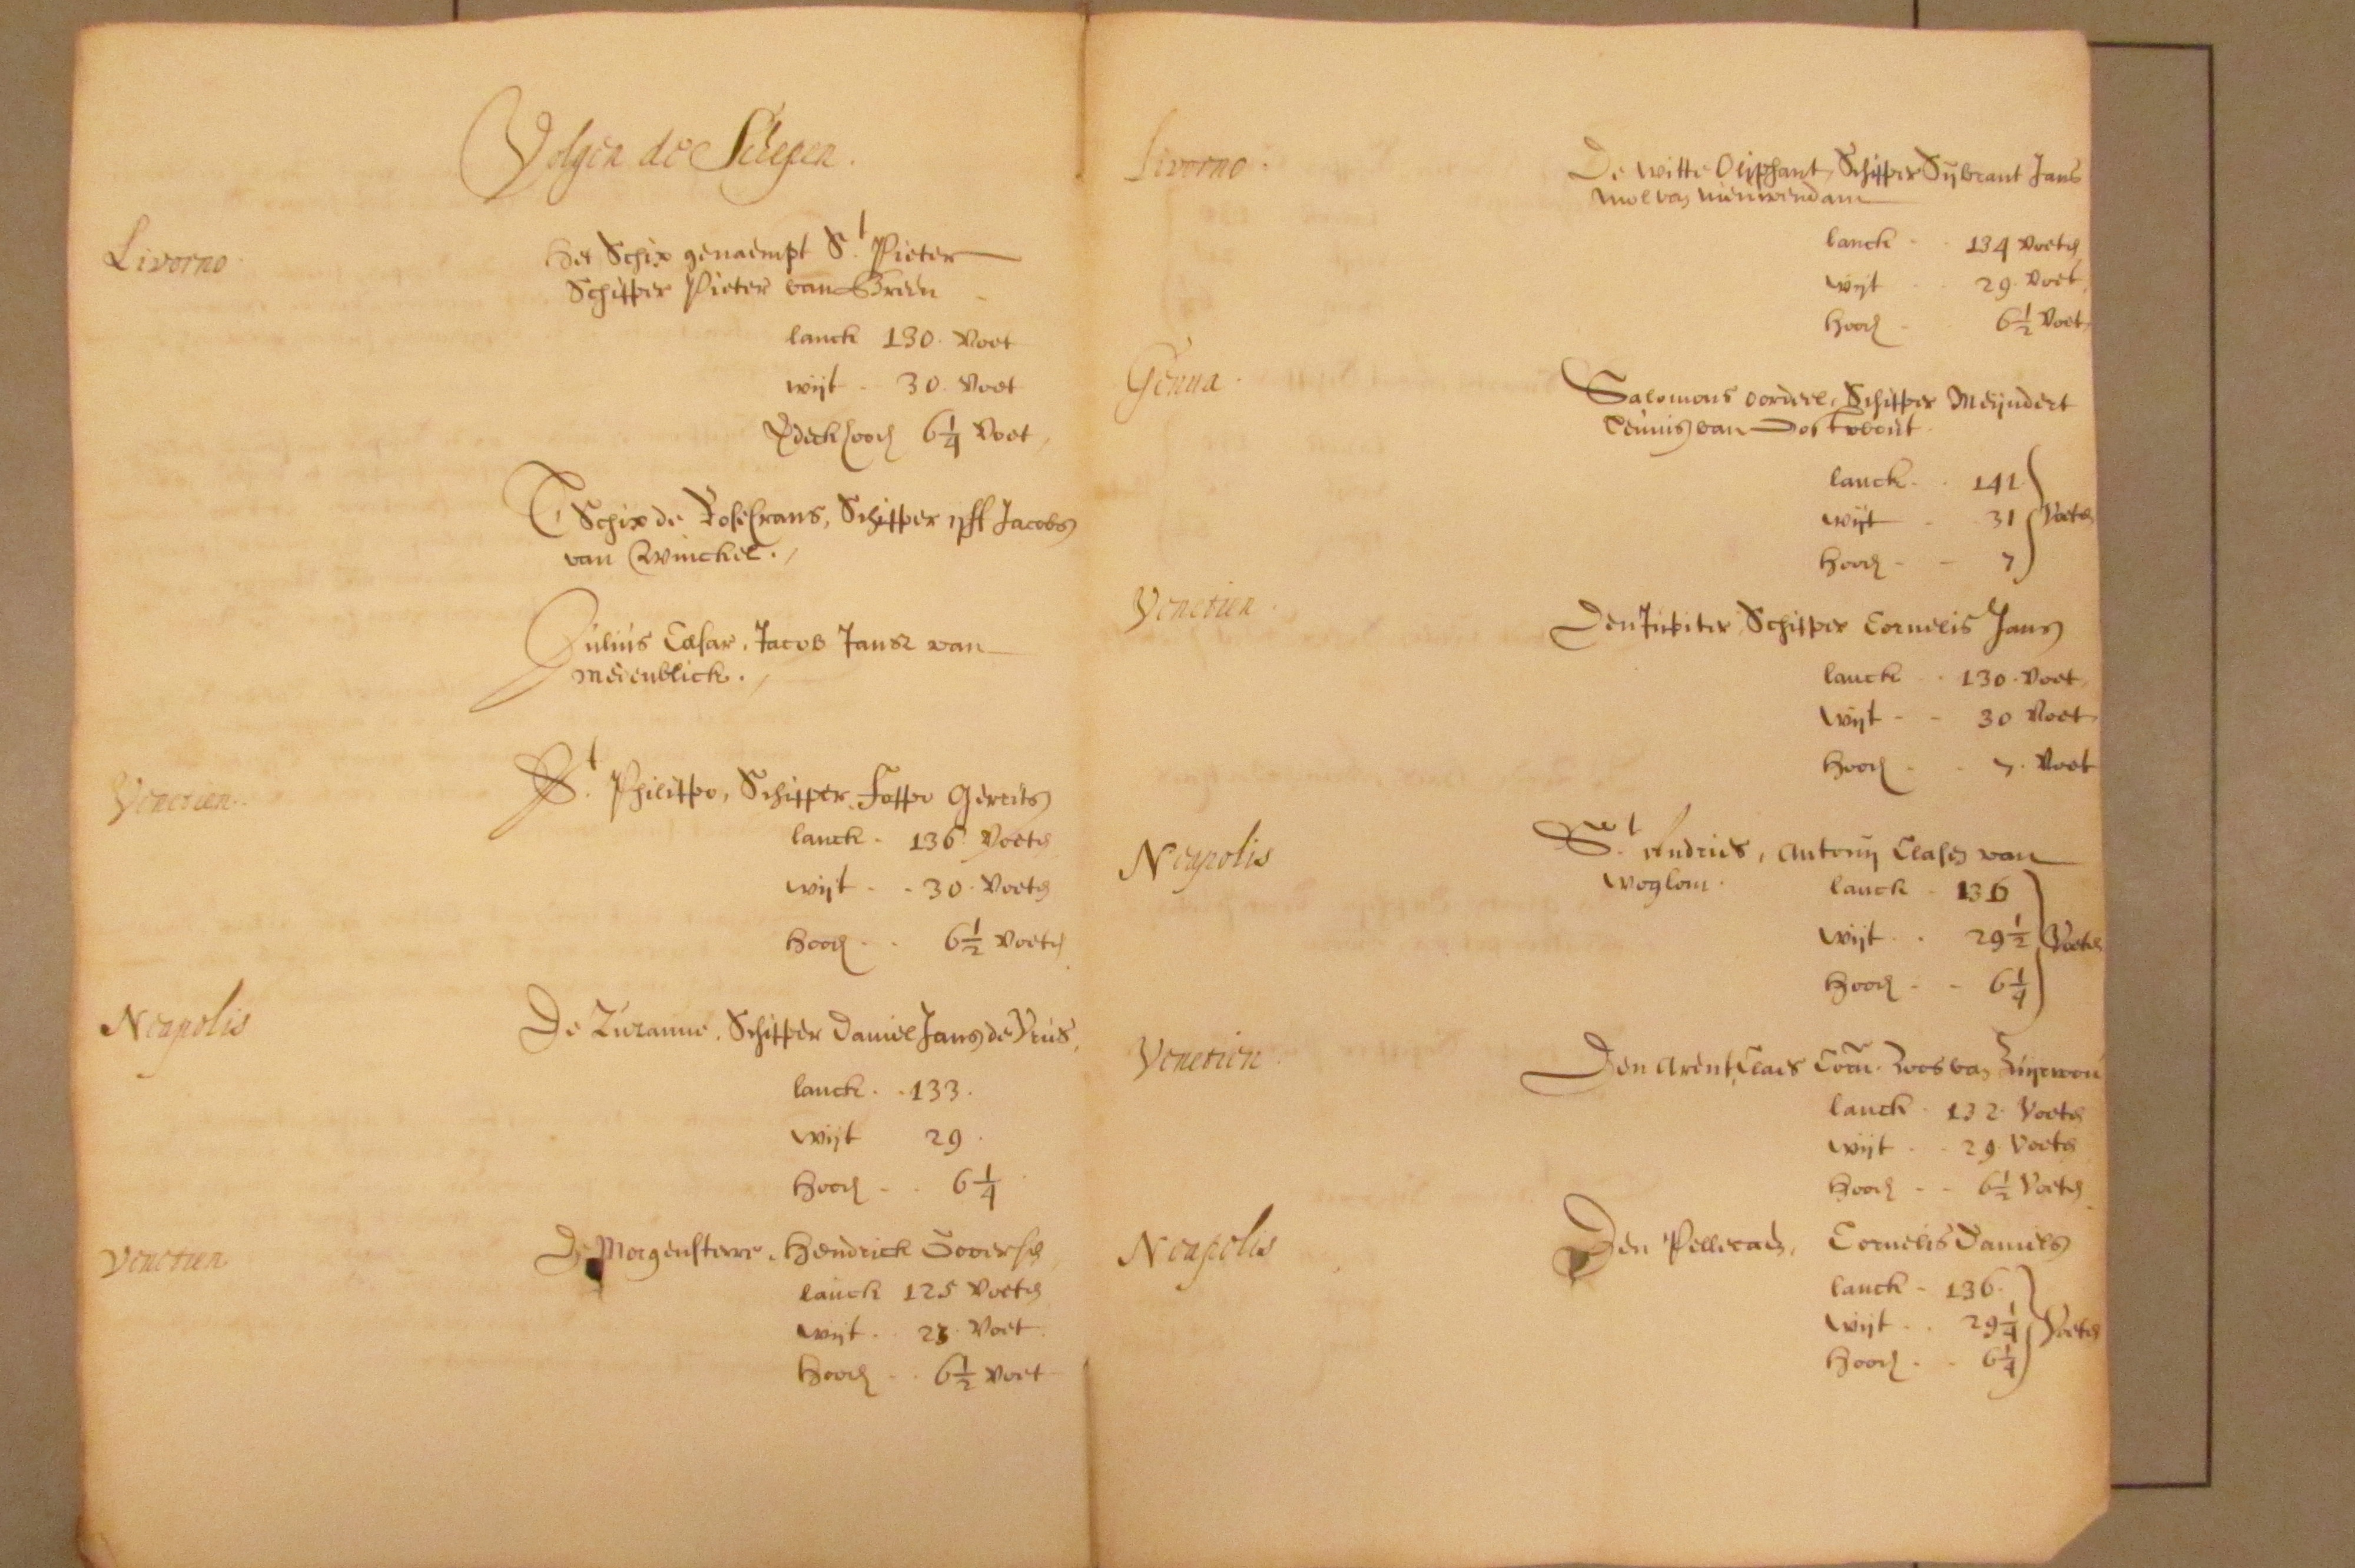 Volgen de Schepen.
Livorno
Het Schip genaempt St. Pieter
Schipper Pieter van Breen
lanck 130 voet
wijt 30 voet
deck hooch 6 1/4 voet
T Schip de Rosecrans, Schipper Jacobs
van Winckel.
Julius Cesar, Jacob Jansz van
Medenblick.
Venetien
St. Philippo, Schipper Foppe Gerrits
lanck 136 voeten
wijt 30 voeten
hooch 6 1/2 voeten
Neapolis
De Zuzanne, Schipper Daniel Jans de
lanck 133
wijt 29
hooch 6 1/4
Venetien
De Morgensterre, Hendrick Goverts
lanck 125 voeten
wijt voet
hooch 6 1/2 voet
Livorno
De witte Olijphant, Schipper Sijbrant Jans
Mol van Nieuwendam
lanck 134 voeten
wijt 29 voet
hooch 6 1/2 voet
Genua
Salomons oordeel, Schipper Meijndert
Teunis van
lanck 141
wijt 31 voeten
hooch 7
Venetien
Den Jupiter Schipper Cornelis Jans
lanck 130 voet
wijt 30 voet
hooch 7 voet
Neapolis
St. Andries, Antonij Clasen van
Woglom
lanck 136
wijt 29 1/2 voeten
hooch 6 1/4
Venetien
Den Arent, Claes Corn. van
lanck 132 voeten
wijt 29 voeten
hooch 6 1/2 voeten
Neapolis
Den Pellicaen, Cornelis Daniels
lanck 136
wijt 29 1/4 voeten
hooch 6 1/4